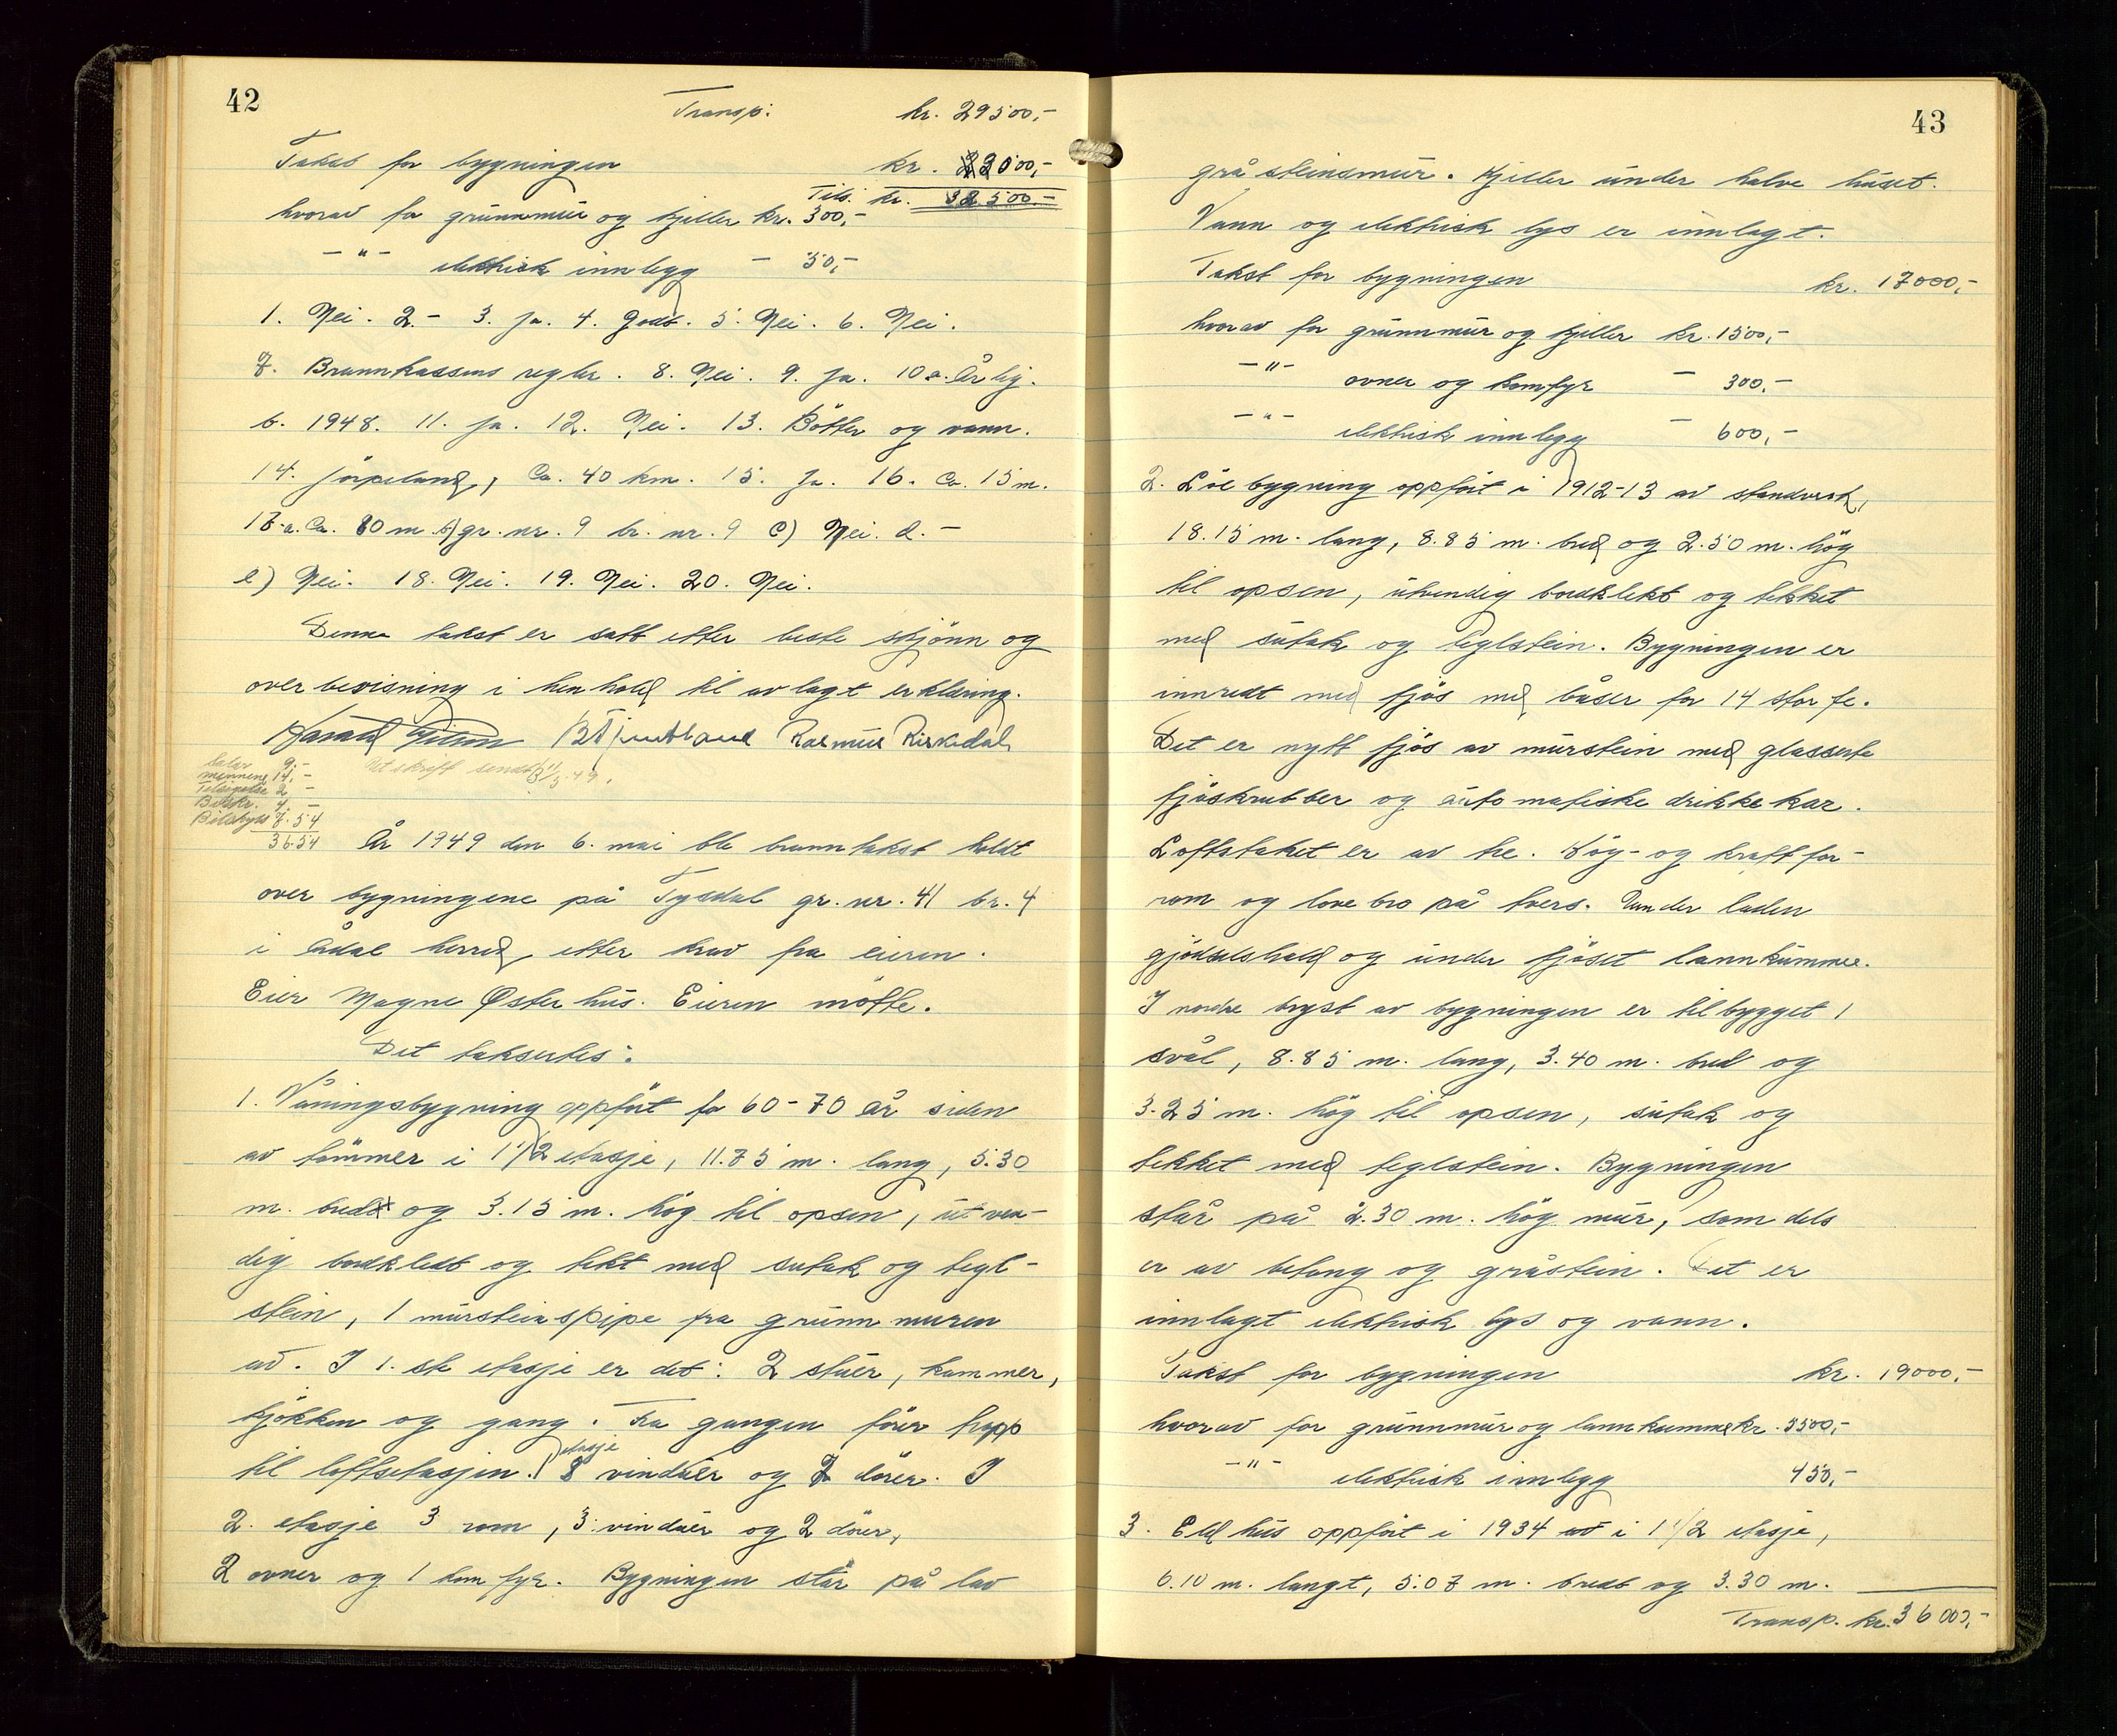 42
Transp: kr. 29500,-
Takst for bygningen kr. 3000,-
Tils. kr. 32500.-
hvorav for grunnmur og kjeller kr. 300,-
-"- elektrisk innlegg - 50,-
1. Nei. 2.- 3. Ja. 4. Godt. 5. Nei. 6. Nei.
7. Brannkassens regler. 8. Nei. 9. Ja. 10 a. Årlig.
b. 1948. 11. Ja. 12. Nei. 13. Bötter og vann.
14. Jörpeland, Ca. 40 km. 15. Ja. 16. Ca. 15 m.
17-a. Ca. 80 m. b) gr. nr. 9 br. nr. 9 c) Nei. d. -
e) Nei. 18. Nei. 19. Nei. 20. Nei.
Denne takst er satt etter beste skjönn og
overbevisning i henhold til avlagt erklæring.
Harald Rasmus Riskedal
Utskrift sendt 31/5-49.
taler 9.-
mennene 14,-
Tilsigelse 2 -
Bilskr. 4. -
Bilskyss 7.54
36.54
År 1949 den 6. mai ble branntakst holdt
over bygningene på Tysdal gr. nr. 41 br. 4
i Årdal herred, etter krav fra eieren.
Eier Magne Østerhus. Eieren mötte.
Det taksertes:
1. Våningsbygning oppfört for 60-70 år siden
av tömmer i 1 1/2 etasje, 11.75 m. lang, 5.30
m. bred og 3.15 m. hög til opsen, utven-
dig bordkledt og tekt med sutak og tegl-
stein, 1 mursteinspipe fra grunnmuren
av. I 1.ste etasje er det: 2 stuer, kammer,
kjökken og gang. Fra gangen förer trapp
til loftsetasjen. etasje 8 vinduer og 7 dörer. I
2. etasje 3 rom, 3 vinduer og 2 dörer,
2 ovner og 1 komfyr. Bygningen står på lav
43
gråsteinsmur. Kjeller under halve huset.
Vann og elektrisk lys er innlagt.
Takst for bygningen kr. 17000,-
hvorav for grunnmur og kjeller kr. 1500,-
-"- ovner og komfyr - 300.-
-"- elektrisk innlegg - 600,-
2. Löebygning oppfört i 1912-13 av standverk,
18.15 m. lang, 8.85 m. bred og 2.50 m. hög
til opsen, utvendig bordkledt og tekket
med sutak og teglstein. Bygningen er
innredt med fjös med båser for 14 storfe.
Det er nytt fjös av murstein med glasserte
fjöskrubber og automatiske drikkekar.
Loftstaket er av tre. Höy- og kraftfor-
rom og lovebro på tvers. Under laden
gjödselshald og under fjöset lannkumme.
I nordre bryst av bygningen er tilbygget 1
svål, 8.85 m. lang, 3.40 m. bred og
3.25 m. hög til opsen, sutak og
tekket med teglstein. Bygningen
står på 2.30 m. hög mur, som dels
er av betong og gråstein. Det er
innlagt elektrisk lys og vann.
Takst for bygningen kr. 19000,-
hvorav for grunnmur og lannkumme kr. 3500,-
-"- elektrisk innlegg 450,-
3. Eldhus oppfört i 1934 av i 1 1/2 etasje,
6.10 m. langt, 5.07 m. bredt og 3.30 m.
Transp. kr. 36000,-